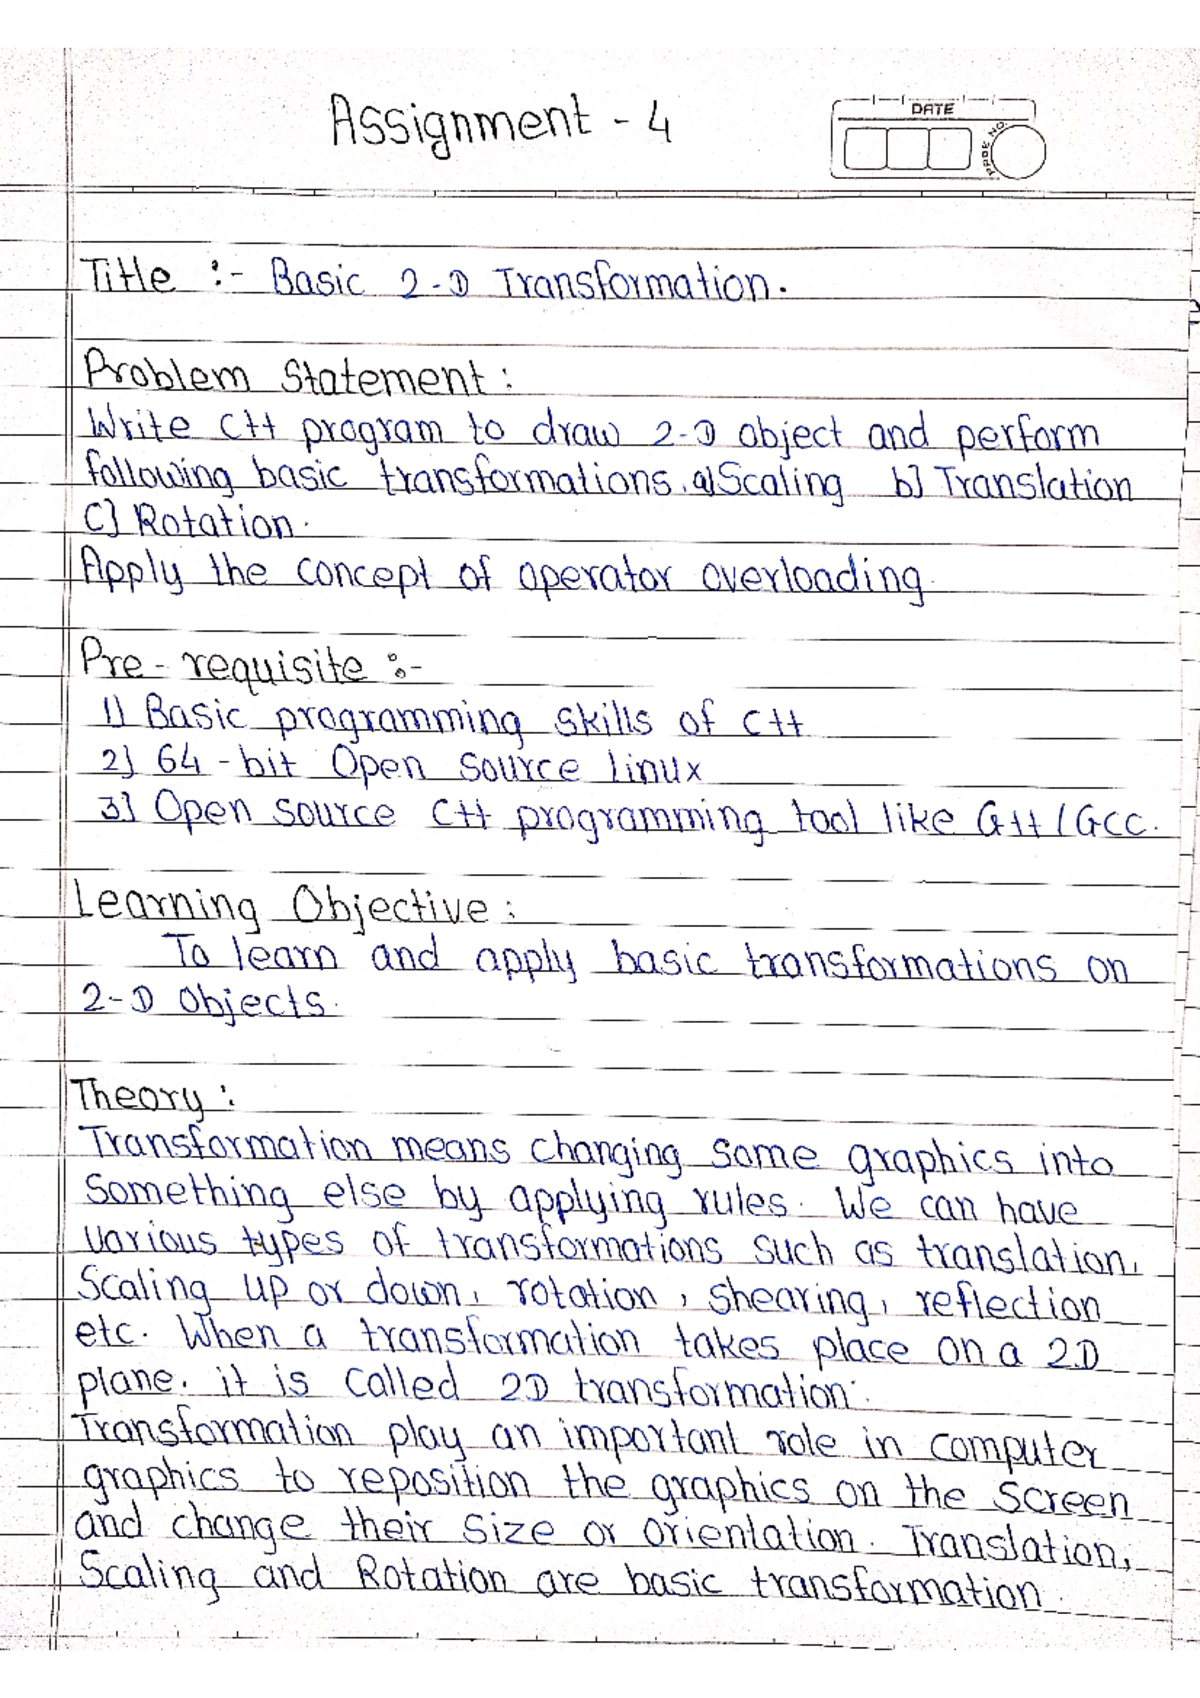 Assignment - 4
DATE
PAGE NO.
Title :- Basic 2-D Transformation.
Problem Statement :
Write C++ program to draw 2-D object and perform
following basic transformations. a) Scaling b] Translation
C] Rotation.
Apply the concept of operator overloading.
Pre-requisite :-
1) Basic programming skills of C++
2] 64-bit Open Source linux
3] Open Source C++ programming tool like G++/GCC.
Learning Objective :
To learn and apply basic transformations on
2-D Objects.
Theory :
Transformation means changing some graphics into
Something else by applying rules. We can have
various types of transformations such as translation,
Scaling up or down, rotation, shearing, reflection
etc. When a transformation takes place on a 2D
plane. it is called 2D transformation.
Transformation play an important role in computer
graphics to reposition the graphics on the screen
and change their size or orientation. Translation,
Scaling and Rotation are basic transformation.